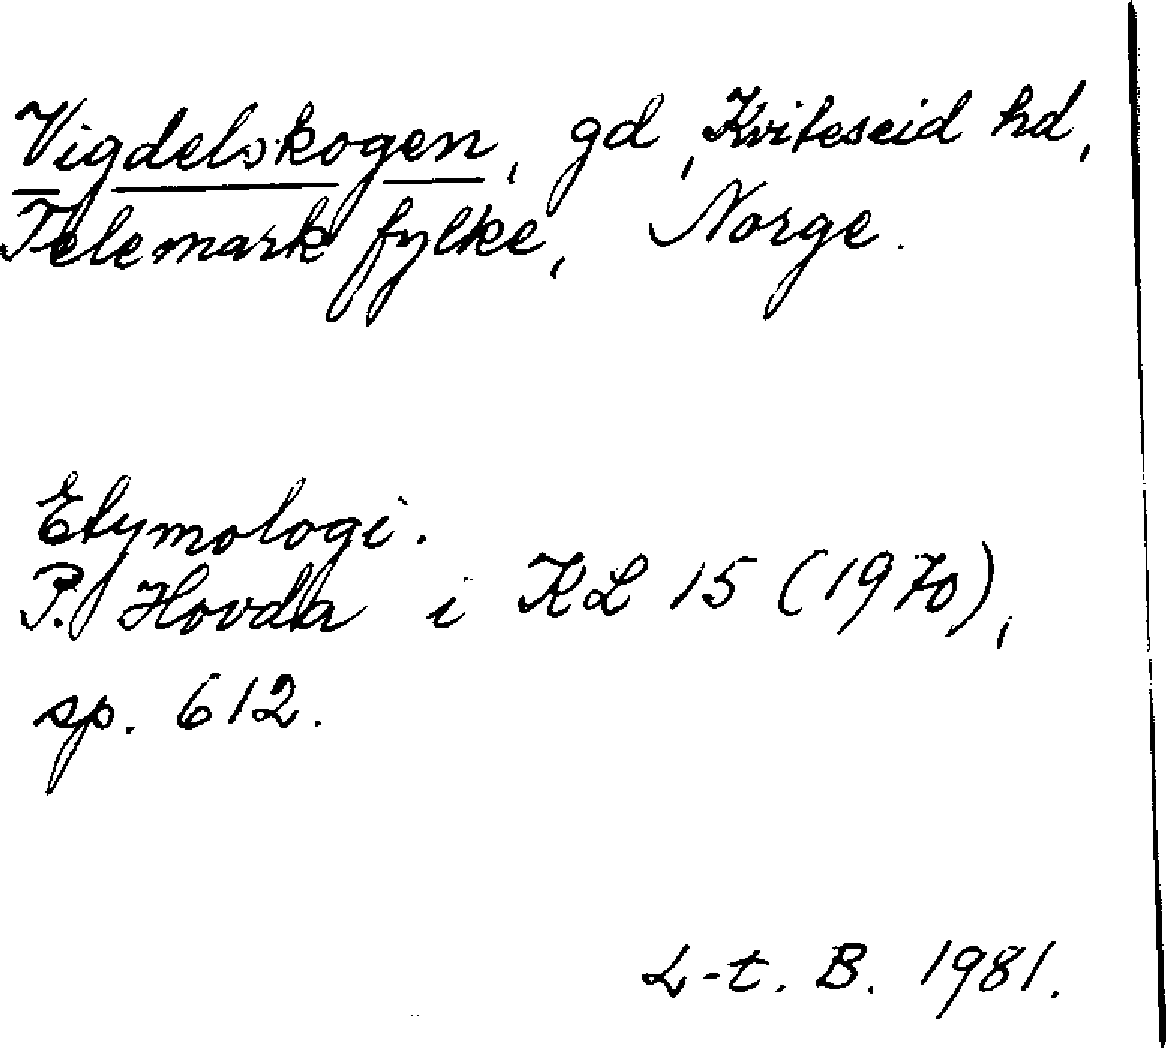 Vigdelskogen, gd, Kviteseid hd,
Telemark fylke, Norge.
Etymologi.
P. Hovda i KL 15 (1970),
sp. 612.
L-t. B. 1981.